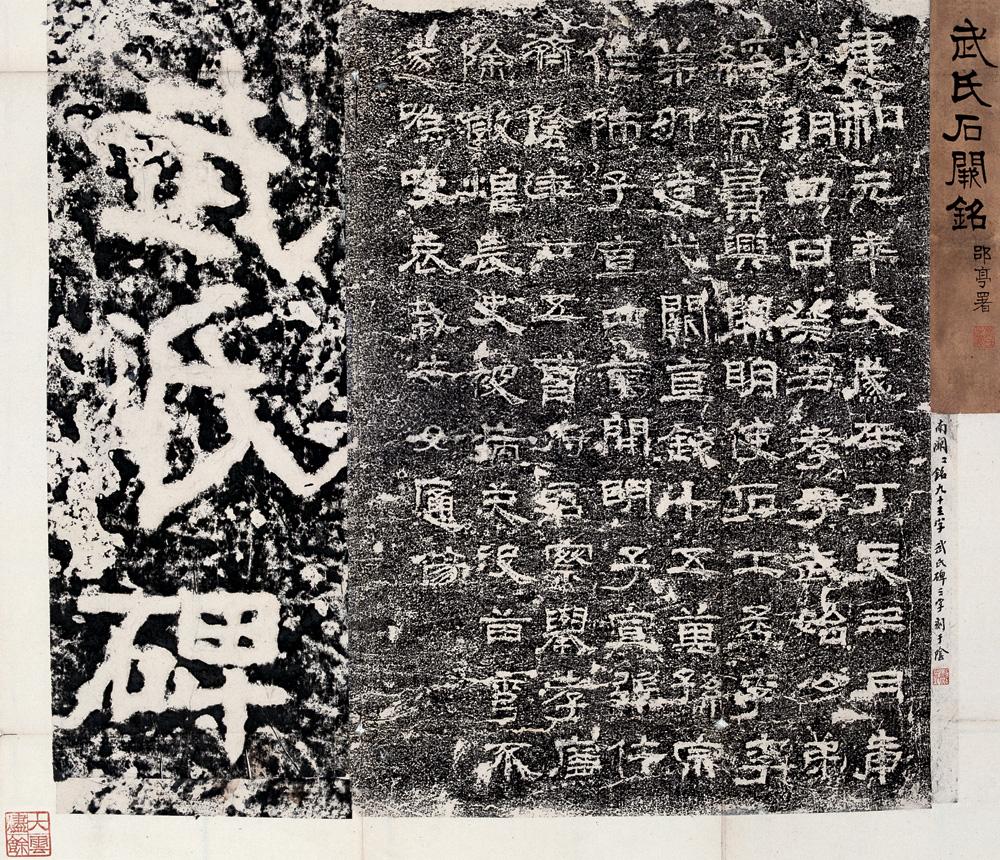 武氏石闕銘
郘亭署
南闕之銘九十三字武氏碑三字刻于陰
建和元年大歲在丁亥三月庚
戌朔四日癸丑孝子武始公弟
綏宗景興開明使石工孟孚李
弟卯造此闕直錢十五萬孫宗
作師子直四萬開明子宣張仕
濟陰年廿五曹府君察舉孝廉
除敦煌長史被病夭歿苗秀不
遂嗚呼哀哉士女痛傷
武氏碑
大雲燼餘